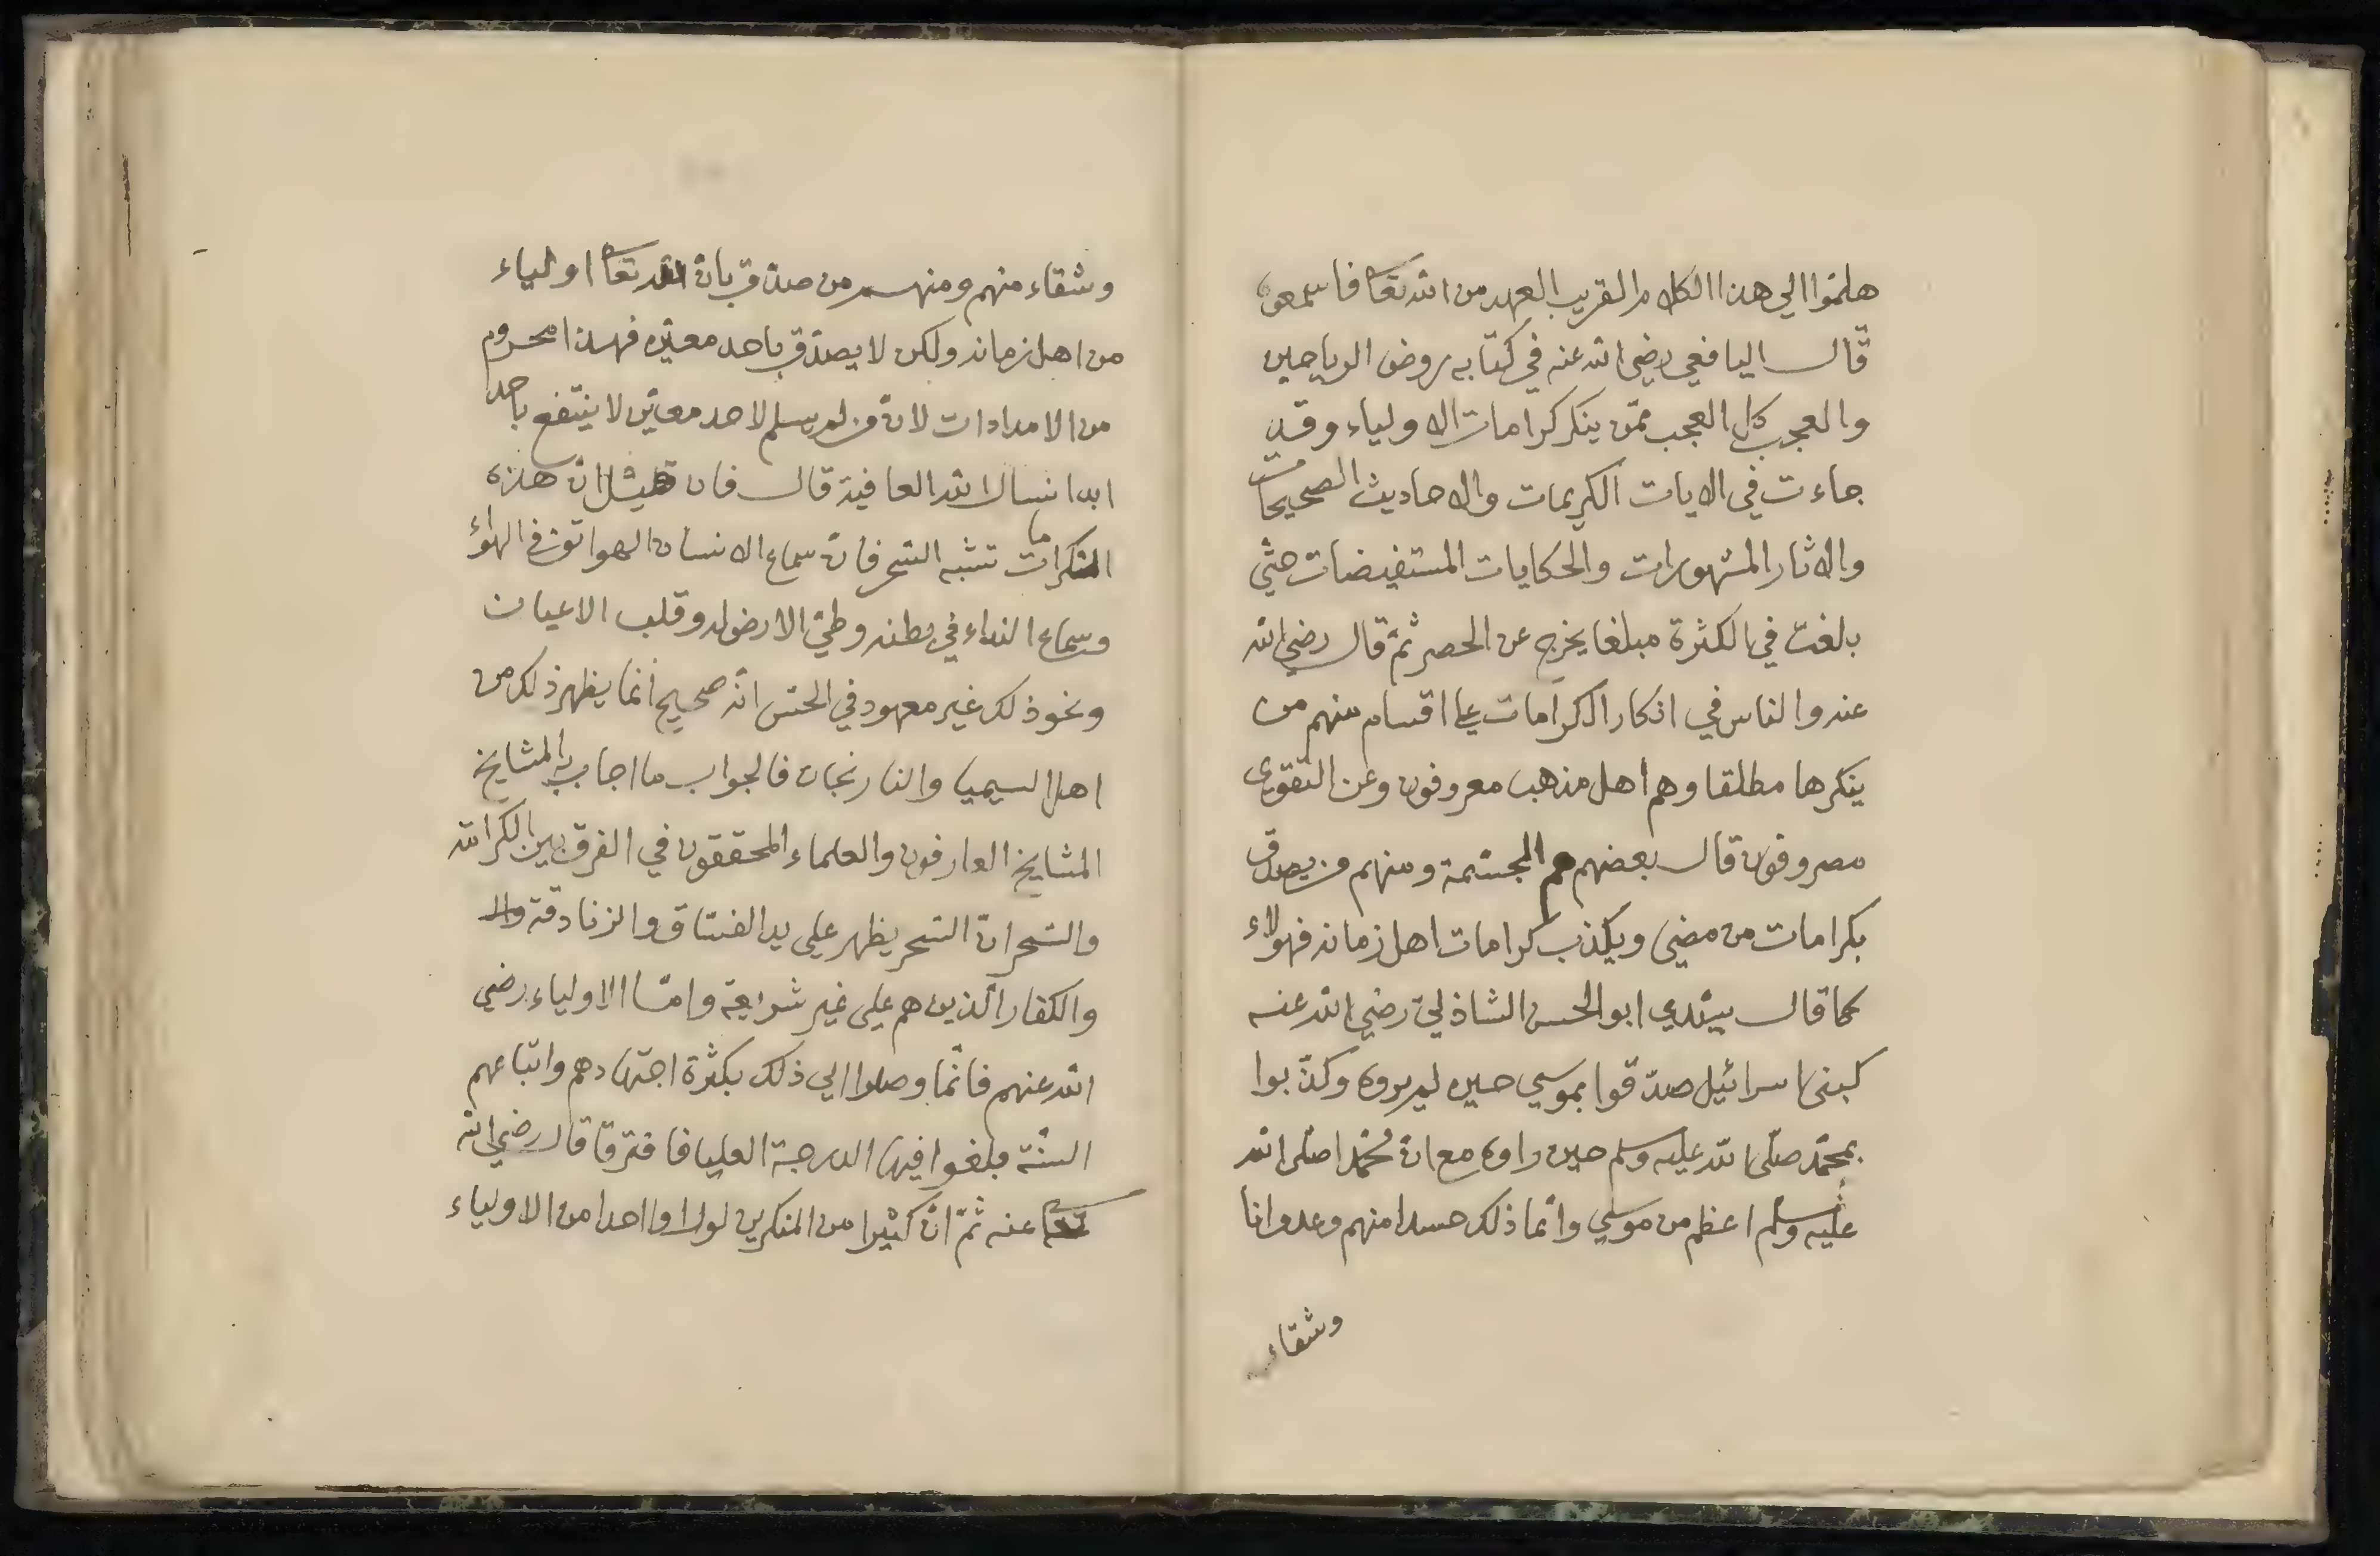 هلمّوا الي هذا الكلام القريب العهد من الله تعا فاسمعوه
قال اليافعي رضي الله عنه في كتابه روض الرياحين
والعجب كل العجب ممّن ينكر كرامات الاولياء وقد
جاءت في الايات الكريمات والاحاديث الصحيحات
والاثار المشهورات والحكايات المستفيضات حتّي
بلغت في الكثرة مبلغا يخرج عن الحصر ثمّ قال رضي الله
عنه والناس في انكار الكرامات علي اقسام منهم من
ينكرها مطلقا وهم اهل مذهب معروفون وعن التقوي
مصروفون قال بعضهم هم المجسّمة ومنهم من يصدق
بكرامات من مضي ويكذب كرامات اهل زمانه فهولاء
كما قال سيّدي ابو الحسن الشاذليّ رضي الله عنه
كبني اسرائيل صدّقوا بموسي حين لم يروه وكذّبوا
بمحمّد صلّي الله عليه وسلم حين راوه مع انّ محمّدا صلّي الله
عليه وسلم اعظم من موسي وانّما ذلك حسدا منهم وعدوانا
وشقاء
وشقاء منهم ومنهم من صدّق بانّ الله تعا اولياء
من اهل زمانه ولكن لا يصدّق باحد معيّن فهذا محروم
من الامدادات لانّ من لم يسلم لاحد معيّن لا ينتفع باحد
ابدا نسال الله العافية قال فان قيل انّ هذه
الكرامات تشبه السّحر فانّ سماع الانسان الهواتف في الهواء
وسماع النداء في بطنه وطيّ الارض له وقلب الاعيان
ونحو ذلك غير معهود في الحسّ انّه صحيح انّما يظهر ذلك من
اهل السيميا والنارنجات فالجواب ما اجاب به المشايخ
المشايخ العارفون والعلماء المحققون في الفرق بين الكرامة
والسّحر انّ السّحر يظهر علي يد الفسّاق والزنادقة وال
والكفار الّذين هم علي غير شريعة وامّا الاولياء رضي
الله عنهم فانّما وصلوا الي ذلك بكثرة اجتهادهم واتباعهم
السنّة فبلغوا فيها الدرجة العليا فافترقا قال رضي الله
تعا عنه ثمّ انّ كثيرا من المنكرين لو راوا احدا من الاولياء